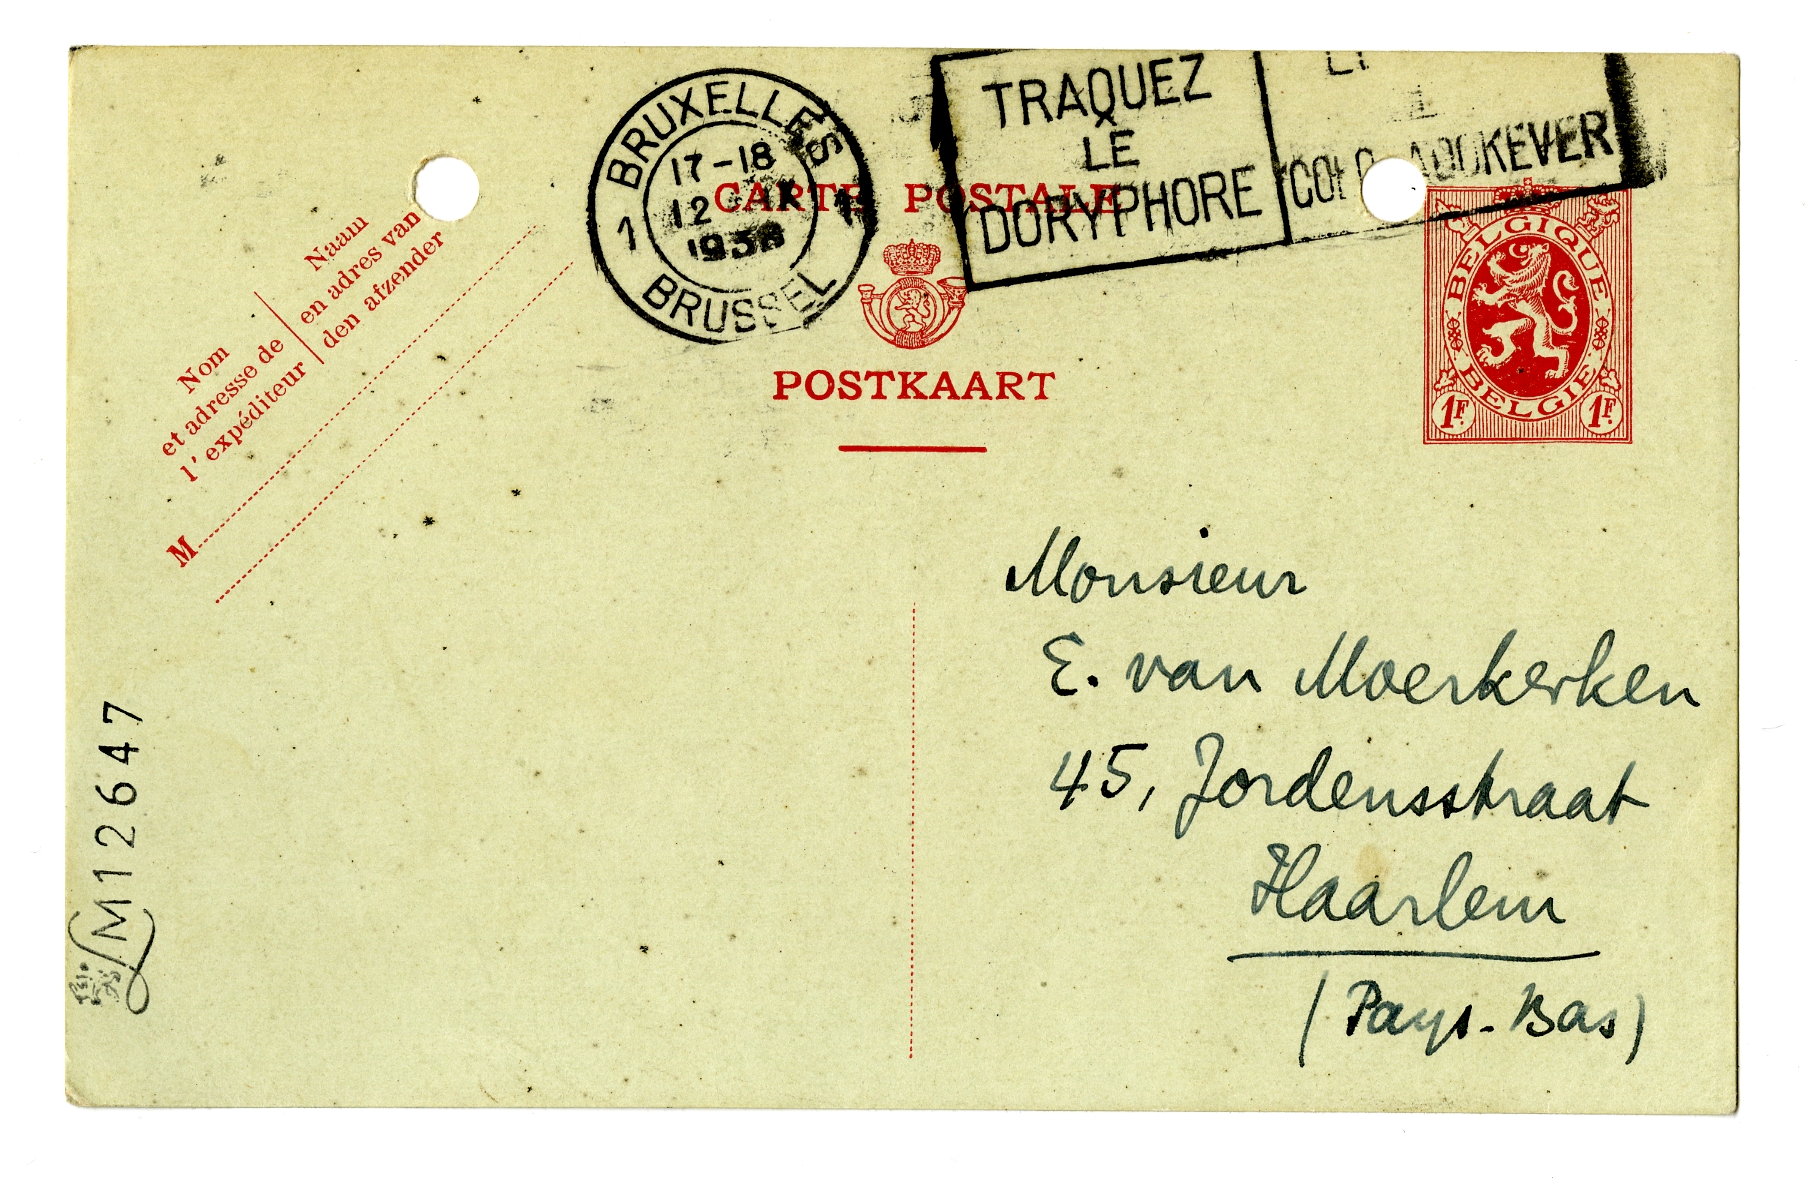 BRUXELLES
1 1
17-18
12
1938
BRUSSEL
TRAQUEZ
LE
DORYPHORE
CARTE POSTALE
POSTKAART
Nom
et adresse de
l'expéditeur
Naam
en adres van
den afzender
M
BELGIQUE
BELGIE
1F. 1F.
Monsieur
E. van Moerkerken
45, Jordensstraat
Haarlem
(Pays-Bas)
M12647